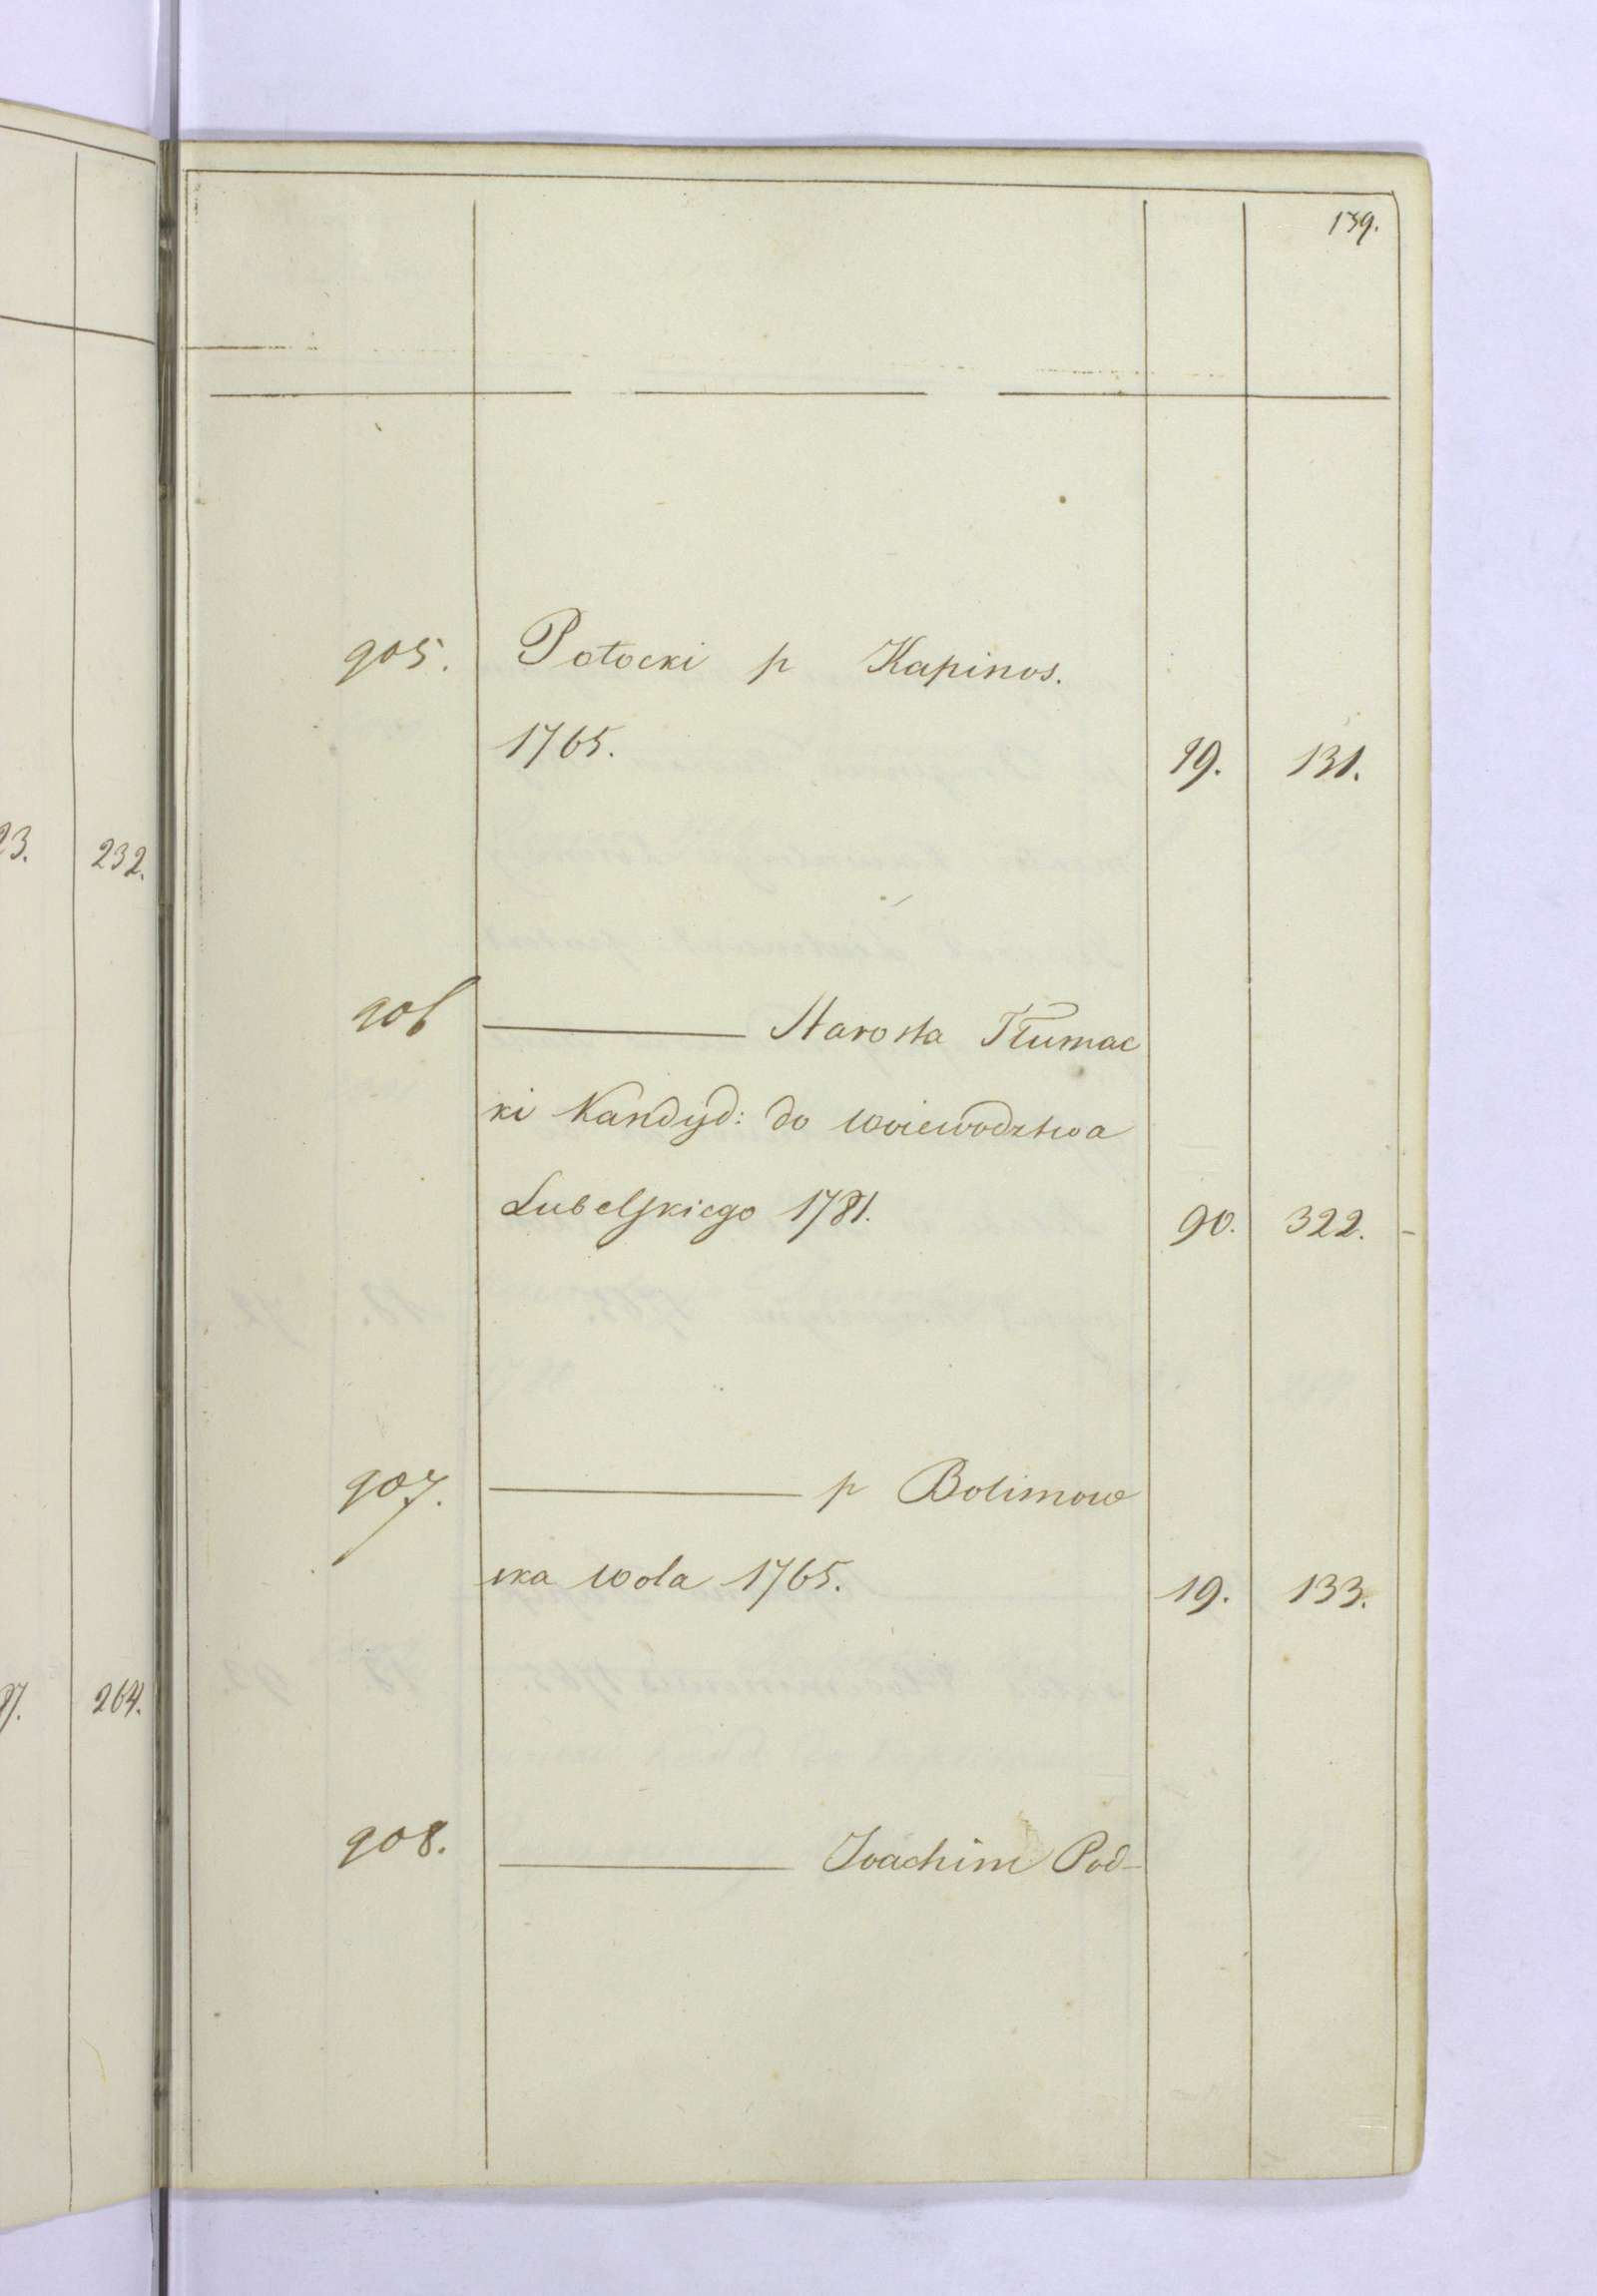 139.
905. Potocki p Kapinos.
1765. 19. 131.
23. 232.
906 ——— Starosta Tłumac
ki Kandyd: do woiewodztwa
Lubelskiego 1781. 90. 322.
907. ——— p Bolimow
ska wola 1765. 19. 133.
264.
908. ——— Joachim Pod-